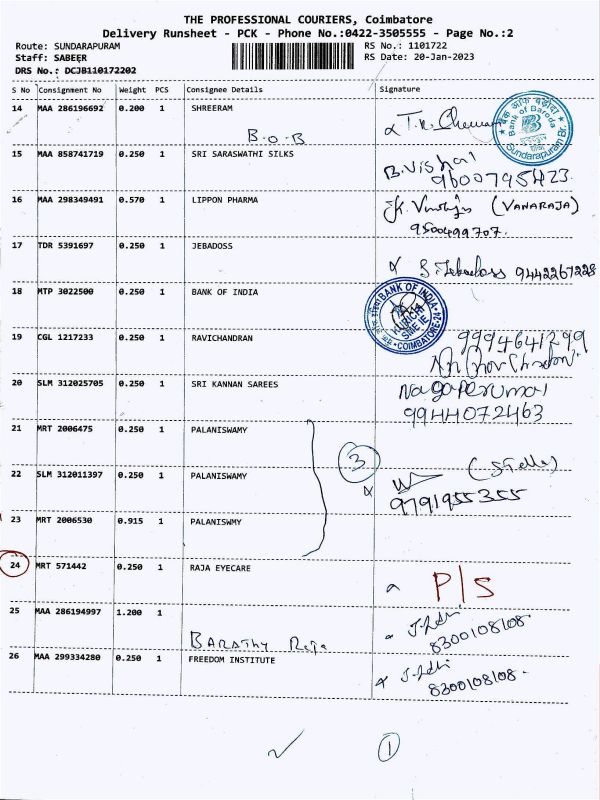 THE PROFESSIONAL COURIERS, Coimbatore
Delivery Runsheet - PCK - Phone No.:0422-3505555 - Page No.:2
Route: SUNDARAPURAM RS No.: 1101722
Staff: SABEER RS Date: 20-Jan-2023
DRS No.: DCJB110172202
S No Consignment No Weight PCS Consignee Details Signature
14 MAA 286196692 0.200 1 SHREERAM
B.O.B
Bank of Baroda
Sundarapuram Br.
15 MAA 858741719 0.250 1 SRI SARASWATHI SILKS B.Vishal
9600795423
16 MAA 298349491 0.570 1 LIPPON PHARMA (VANARAJA)
9500499707
17 TDR 5391697 0.250 1 JEBADOSS S.Jebadoss 9442267228
18 MTP 3022500 0.250 1 BANK OF INDIA
BANK OF INDIA
COIMBATORE-24
19 CGL 1217233 0.250 1 RAVICHANDRAN 9994641299
20 SLM 312025705 0.250 1 SRI KANNAN SAREES Nagaperumal
9944072463
21 MRT 2006475 0.250 1 PALANISWAMY
3
22 SLM 312011397 0.250 1 PALANISWAMY (Stella)
9791955355
23 MRT 2006530 0.915 1 PALANISWMY
24 MRT 571442 0.250 1 RAJA EYECARE P/S
25 MAA 286194997 1.200 1
BARATHY Raja 8300108108
26 MAA 299334280 0.250 1 FREEDOM INSTITUTE
8300108108
1